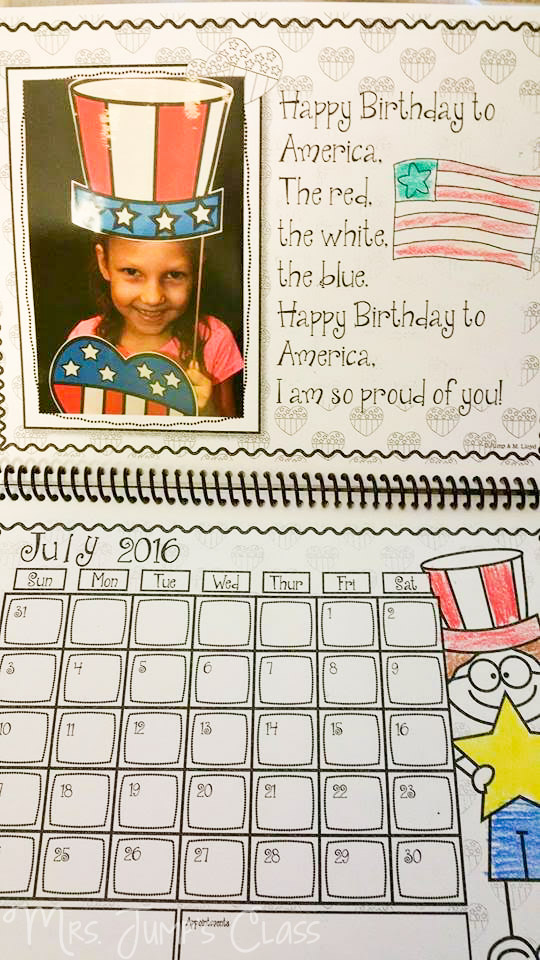 Happy Birthday to
America,
The red,
the white,
the blue.
Happy Birthday to
America,
I am so proud of you!
D.Jump & M. Lloyd
July 2016
Sun Mon Tue Wed Thur Fri Sat
31 1 2
3 4 5 6 7 8 9
10 11 12 13 14 15 16
18 19 20 21 22 23
25 26 27 28 29 30
Appointments
Mrs. Jump's Class